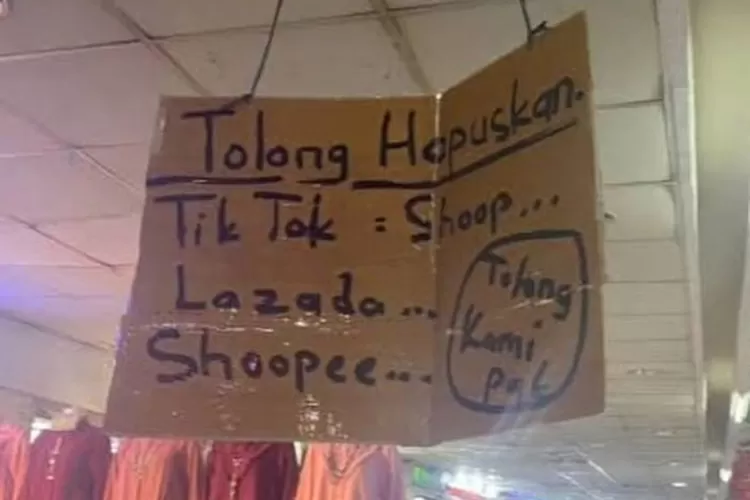 Tolong Hapuskan.
Tik Tok = Shoop...
Lazada...
Shoopee...
Tolong
Kami
pak